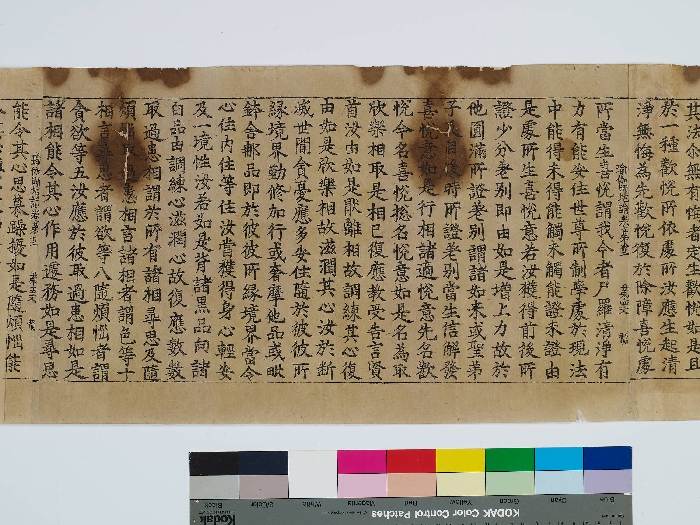 有
生歡悅如是且
於一種歡悅所依處所汝應生起清
淨無悔為先歡悅復於除障喜悅處
瑜伽師地論
所當生喜悅謂我今者尸羅清淨有
力有能安住世尊所制學處於現法
中能得未得能觸未觸能證未證由
是處所生喜悅意若汝獲得前後所
證少分差別即由如是增上力故於
他圓滿所證差別謂諸如來或聖弟
子及自後時所證差別當生信解發
喜悅意如是行相諸適悅意先名歡
悅今名喜悅總名悅意如是名為取
欣樂相取是相已復應教受告言賢
首汝由如是猒離相故調練其心復
由如是欣樂相故滋潤其心汝於斷
滅世間貪憂應多安住隨於彼彼所
緣境界勤修加行或奢摩他品或毗
鉢舍那品即於彼彼所緣境界當令
心住內住等住汝當獲得身心輕安
及一境性汝若如是背諸黑品向諸
白品由調練心滋潤心故復應數數
取過患相謂於所有諸相尋思及隨
煩惱取過患相言諸相者謂色等十
相言尋思者謂欲等八隨煩惱者謂
貪欲等五汝應於彼取過患相如是
諸相能令其心作用遽務如是尋思
能令其心思慕躁擾如是隨煩惱能
Black
3/Color
White
Magenta
Red
Yellow
Green
Cyan
Blue
Kodak
KODAK Color Control Patches